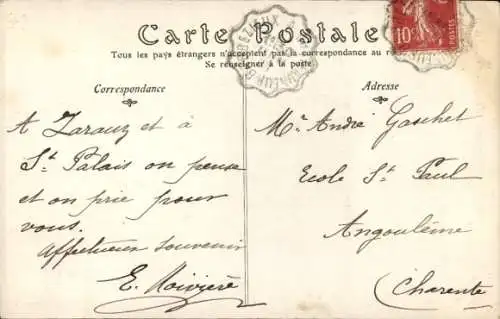 Carte Postale
Tous les pays étrangers n'acceptent pas la correspondance au
Se renseigner à la poste
Correspondance
A Zarauz et à
St. Palais on pense
et on prie pour
vous.
Affectueux souvenir
E. Noivière
Adresse
Mr André Gaschet
Ecole St. Paul
Angoulême
Charente
10c